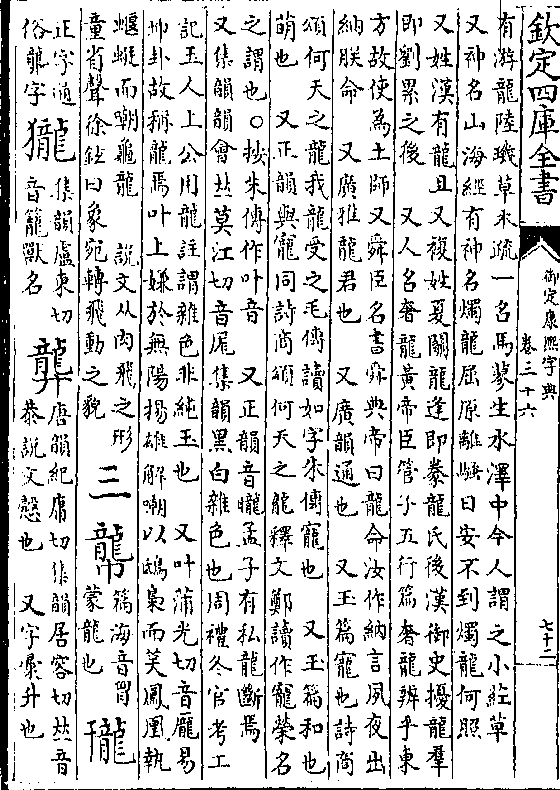 欽定四庫全書
御定康熙字典
卷三十六
七十二
有游龍陸璣草木疏一名馬蓼生水澤中今人謂之小葒草
又神名山海經有神名燭龍屈原離騷日安不到燭龍何照
又姓漢有龍且又複姓夏關龍逢即豢龍氏後漢御史擾龍羣
即劉累之後　又人名奢龍黄帝臣管子五行篇奢龍辨乎東
方故使為土師又舜臣名書舜典帝曰龍命汝作納言夙夜出
納朕命　又廣雅龍君也　又廣韻通也　又玉篇寵也詩商
頌何天之龍我龍受之毛傳讀如字朱傳寵也　又玉篇和也
萌也　又正韻與寵同詩商頌何天之龍釋文鄭讀作寵榮名
之謂也○按朱傳作叶音　又正韻音壠孟子有私龍斷焉
又集韻韻會𠀤莫江切音厖集韻黑白雜色也周禮冬官考工
記玉人上公用龍註謂雜色非純玉也　又叶蒲光切音龎易
坤卦故稱龍焉叶上嫌於無陽揚雄解嘲以鴟梟而笑鳳凰執
蝘蜓而嘲龜龍　說文从肉飛之形
童省聲徐鉉曰象宛轉飛動之貌
三
龓
篇海音冐
蒙龍也
正字通
俗龓字
㺡
集韻盧東切
音籠獸名
龏
唐韻紀庸切集韻居容切𠀤音
恭說文慤也　又字彙升也